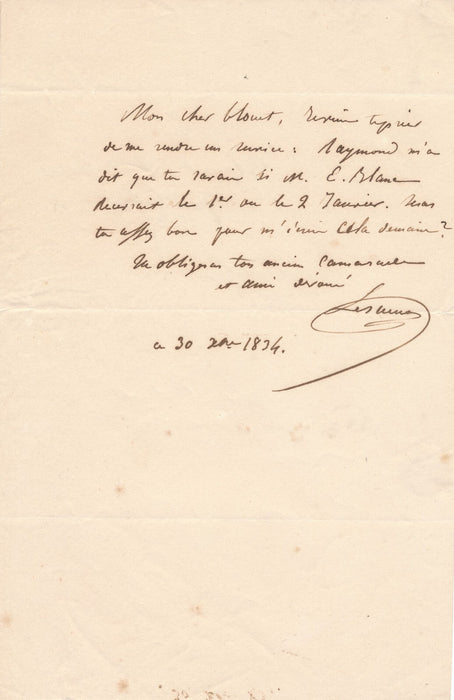 Mon cher blouet, je viens te prier
de me rendre un service : Raymond m'a
dit que tu savais si M. E. Blanc
recevrait le 1er ou le 2 Janvier. Seras
tu assez bon pour m'écrire cela demain ?
Tu obligeras ton ancien Camarade
et ami dévoué
ce 30 Xbre 1834.